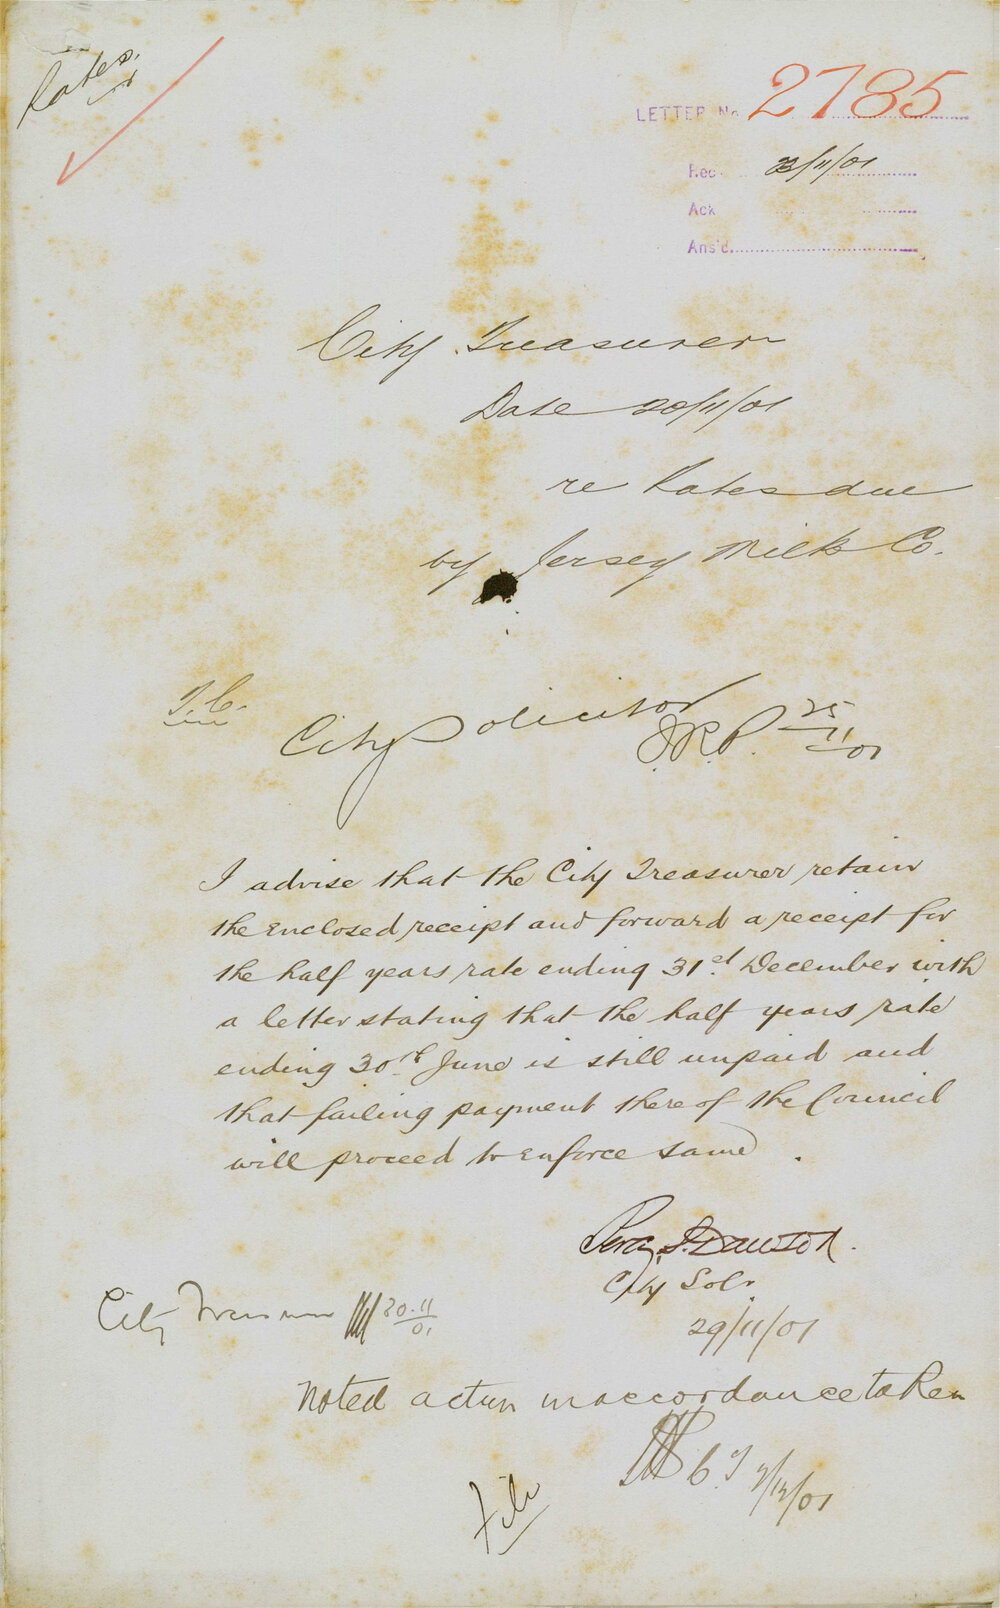 Rates.
LETTER No 2785
Rec 23/11/01
Ack
Ans'd.
City Treasurer
Date 20/11/01
re Rates due
by Jersey Milk Co.
T.C.
City Solicitor
J.R.P. 25/11/01
I advise that the City Treasurer retain
the enclosed receipt and forward a receipt for
the half years rate ending 31st December with
a letter stating that the half years rate
ending 30th June is still unpaid and
that failing payment thereof the Council
will proceed to enforce same.
Percy S. Dawson.
City Solr.
29/11/01
City Treasurer 30.11/01
Noted action in accordance taken
C.T. 2/12/01
File